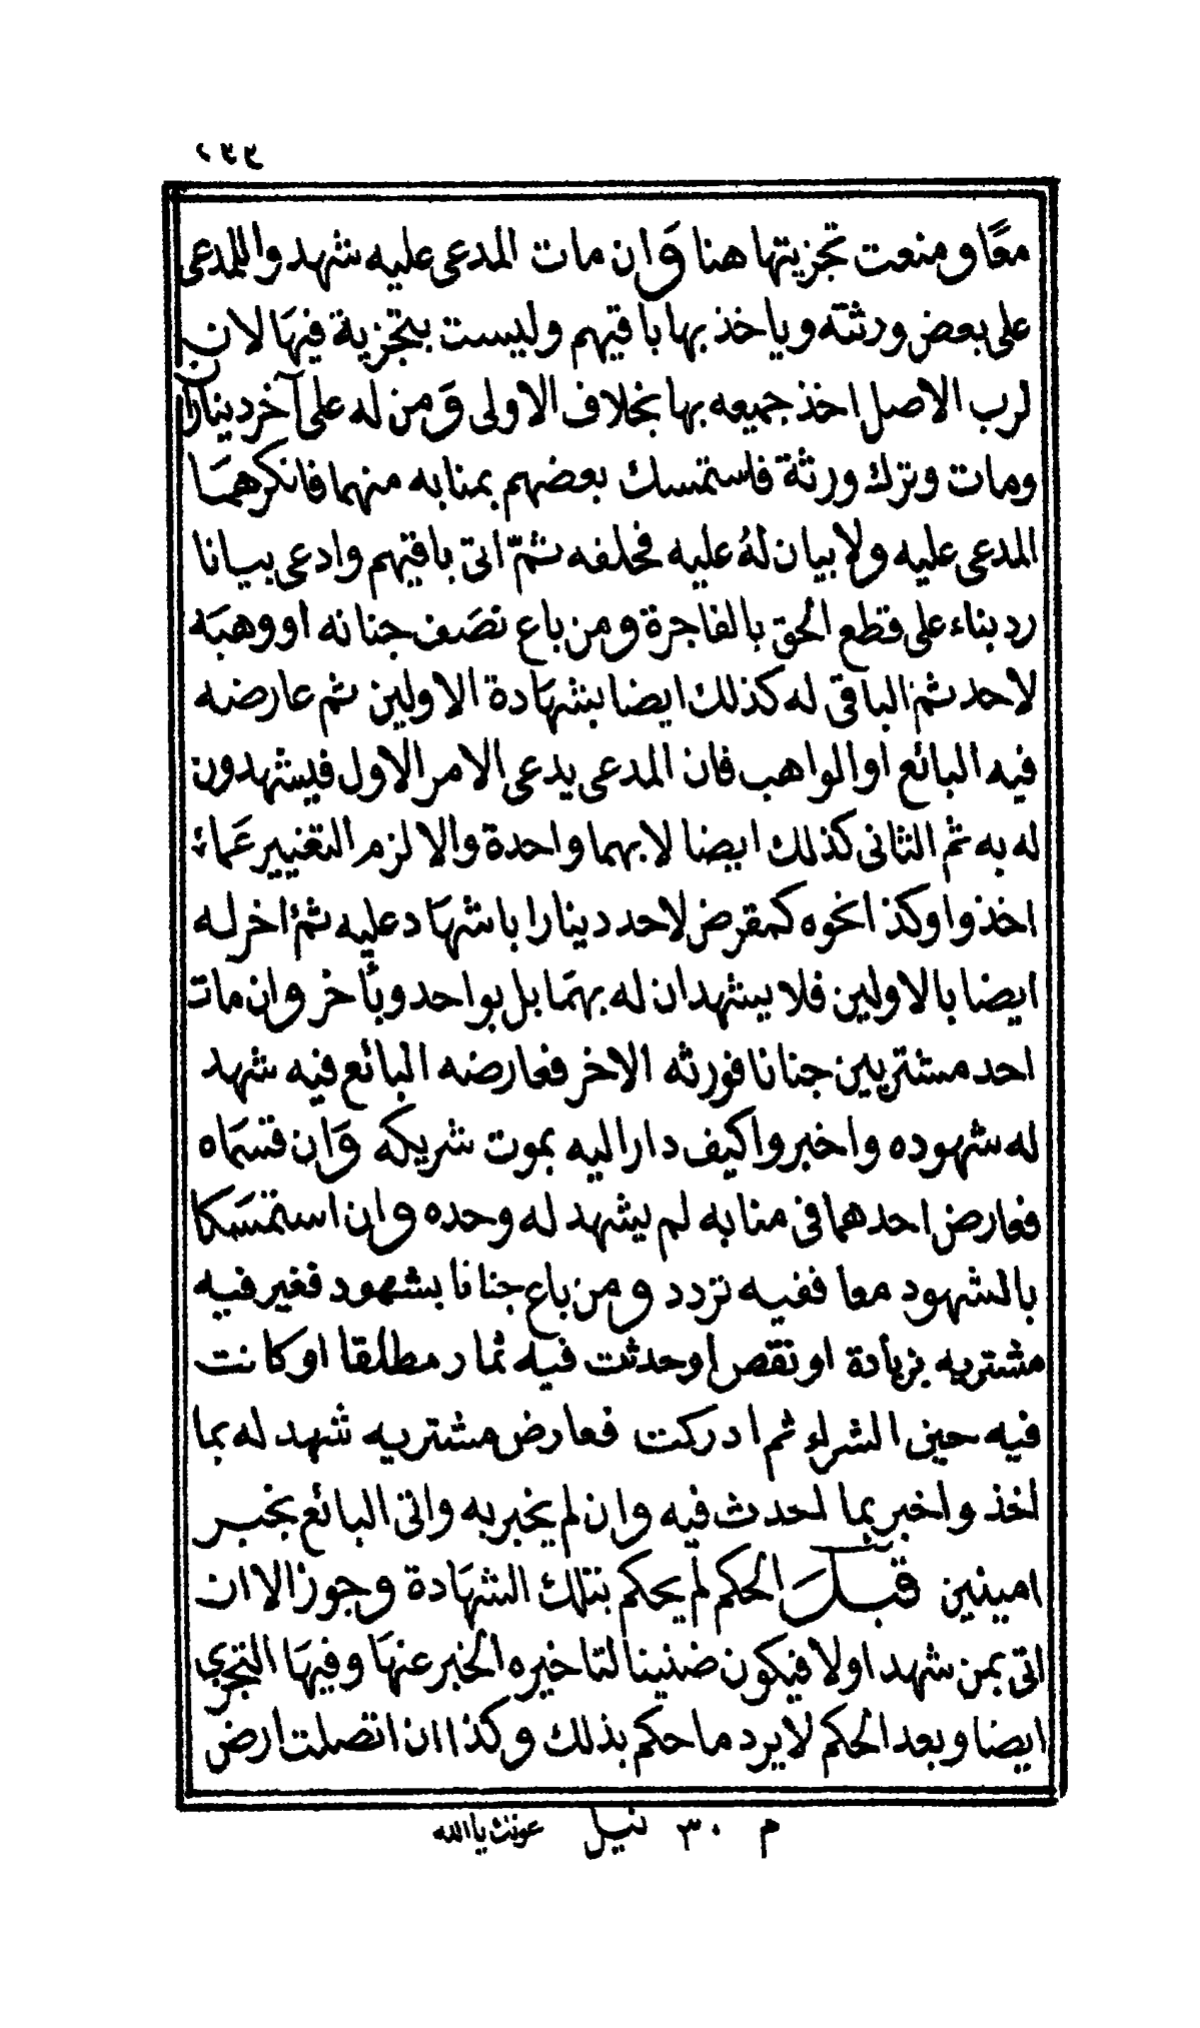 ٢٣٣
معا ومنعت تجزيتها هنا وان مات المدعى عليه شهدوا للمدعى
على بعض ورثته وياخذ بها باقيهم وليست بتجزية فيها لان
لرب الاصل اخذ جميعه بها بخلاف الاولى ومن له على آخر دينارا
ومات وترك ورثة فاستمسك بعضهم بمنابه منهما فانكرهما
المدعى عليه ولا بيان له عليه فحلفه ثم اتى باقيهم وادعى بيانا
رد بناء على قطع الحق بالفاجرة ومن باع نصف جنانه او وهبه
لاحد ثم الباقى له كذلك ايضا بشهادة الاولين ثم عارضه
فيه البائع او الواهب فان المدعى يدعى الامر الاول فيشهدون
له به ثم الثانى كذلك ايضا لا بهما واحدة والا لزم التغيير عماء
اخذوا وكذا نحوه كمقرض لاحد دينارا باشهاد عليه ثم اخر له
ايضا بالاولين فلا يشهدان له بهما بل بواحد وبآخر وان مات
احد مشتريين جنانا فورثه الاخر فعارضه البائع فيه شهد
له شهوده واخبروا كيف دار اليه بموت شريكه وان قسماه
فعارض احدهما فى منابه لم يشهد له وحده وان استمسكا
بالشهود معا ففيه تردد ومن باع جنانا بشهود فغير فيه
مشتريه بزيادة او نقص او حدثت فيه ثمار مطلقا او كانت
فيه حين الشراء ثم ادركت فعارض مشتريه شهد له بما
اخذ واخبر بما احدث فيه وان لم يخبر به واتى البائع بخبر
امينين قبل الحكم لم يحكم بتلك الشهادة وجوز الا ان
اتى بمن شهد اولا فيكون ضنينا لتاخيره الخبر عنها وفيها التجرى
ايضا وبعد الحكم لا يرد ما حكم بذلك وكذا ان اتصلت ارض
م ٣٠ نيل عونك يا الله